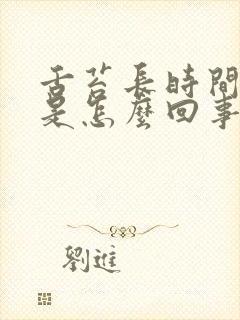 舌苔長時間
是怎麼回事
劉進